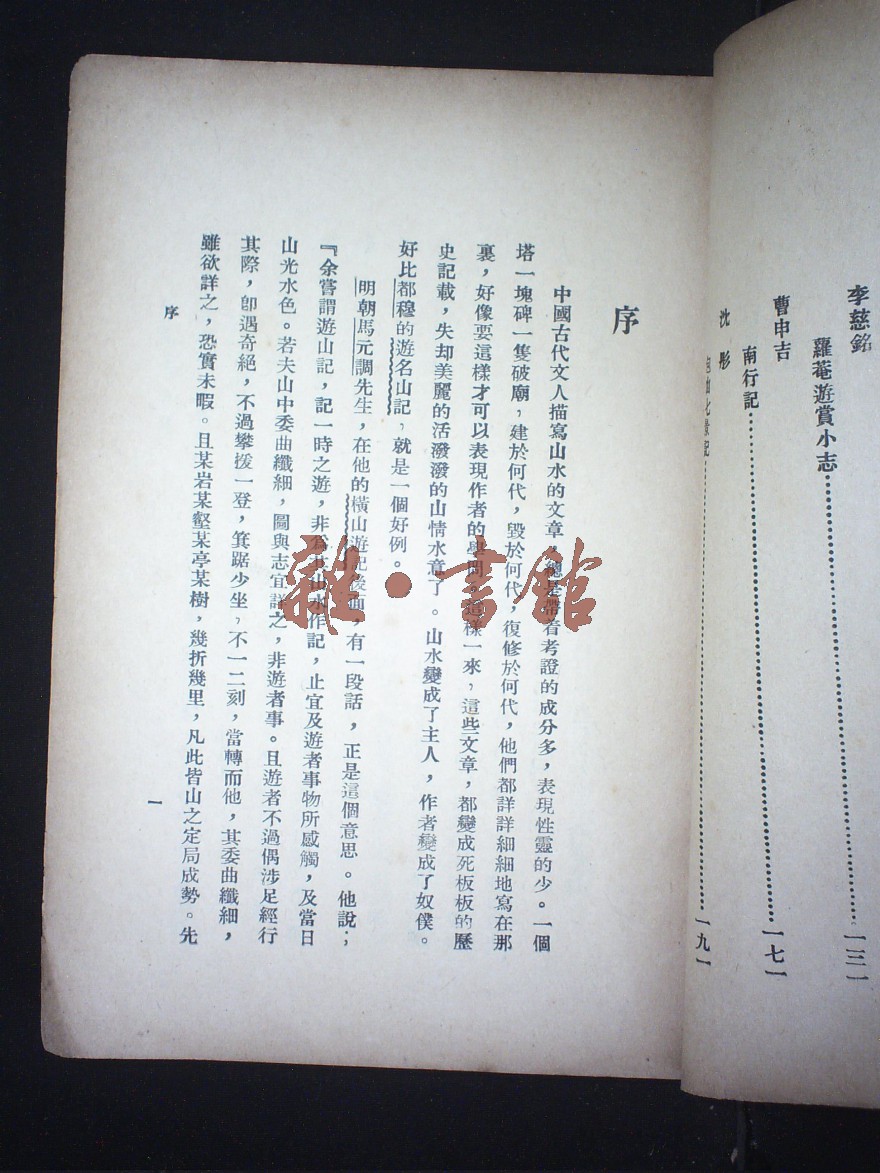 李慈銘
羅菴遊賞小志 一三一
曹申吉
南行記 一七一
沈彤
一九一
序
中國古代文人描寫山水的文章，總是帶着考證的成分多，表現性靈的少。一個
塔一塊碑一隻破廟，建於何代，毀於何代，復修於何代，他們都詳詳細細地寫在那
裏，好像要這樣才可以表現作者的學問。這樣一來，這些文章，都變成死板板的歷
史記載，失却美麗的活潑潑的山情水意了。山水變成了主人，作者變成了奴僕。
好比都穆的遊名山記，就是一個好例。
明朝馬元調先生，在他的橫山遊記後面，有一段話，正是這個意思。他說；
『余嘗謂遊山記，記一時之遊，非為其山水作記，止宜及遊者事物所感觸，及當日
山光水色。若夫山中委曲纖細，圖與志宜詳之，非遊者事。且遊者不過偶涉足經行
其際，卽遇奇絕，不過攀援一登，箕踞少坐，不一二刻，當轉而他，其委曲纖細，
雖欲詳之，恐實未暇。且某岩某壑某亭某樹，幾折幾里，凡此皆山之定局成勢。先
序
一
雜·書館